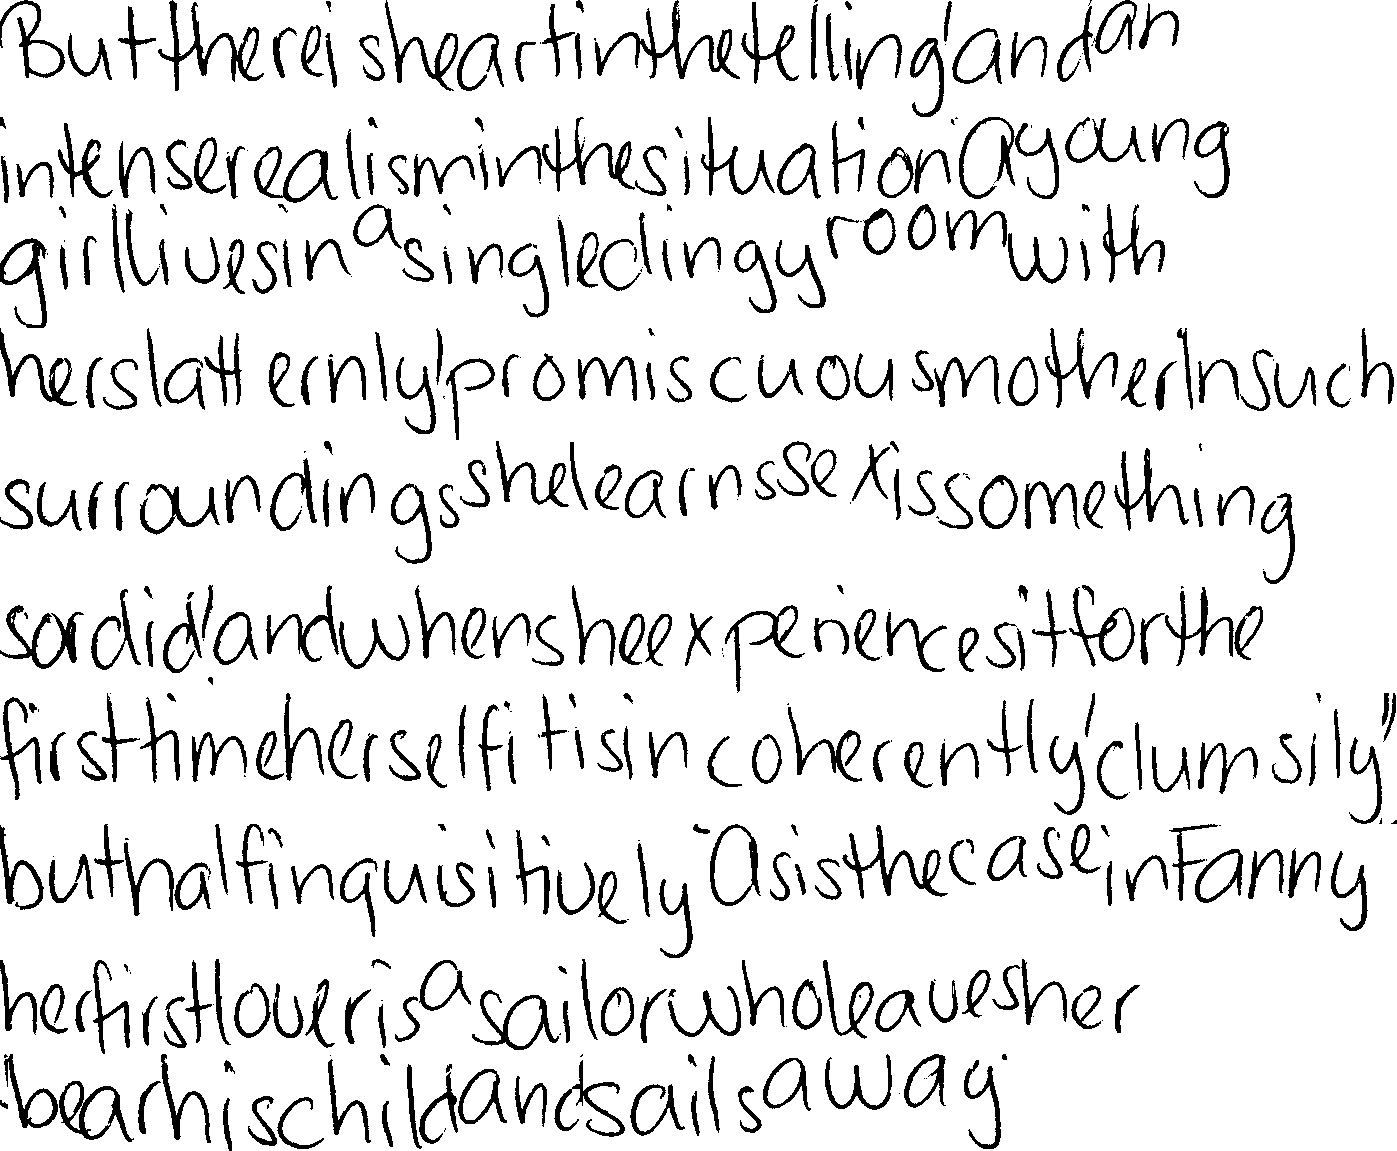 But there is heart in the telling, and an
intense realism in the situation. A young
girl lives in a single dingy room with
her slatternly, promiscuous mother. In such
surroundings she learns sex is something
sordid, and when she experiences it for the
first time herself it is incoherently, clumsily,
but half inquisitively. As is the case in Fanny
her first lover is a sailor who leaves her
bear his child and sails away